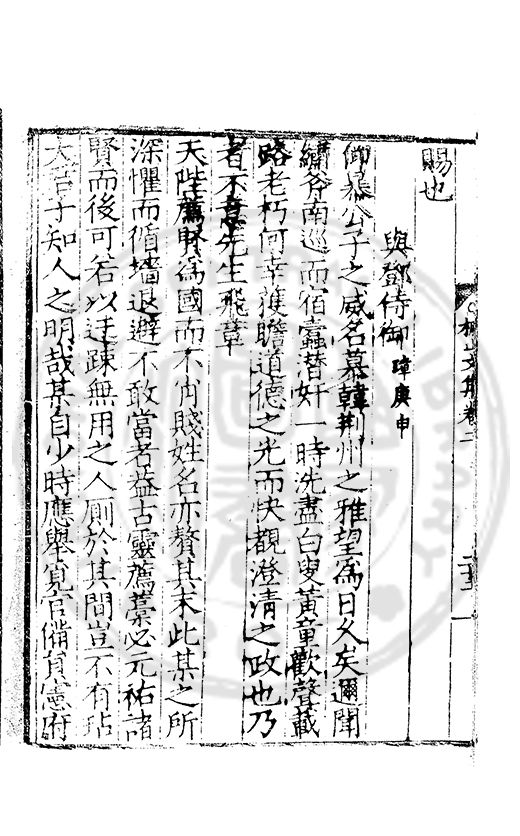 賜也
與鄧侍御 暐庚申
仰慕公子之威名慕韓荆州之雅望爲日久矣邇聞
繡斧南巡而宿蠹潛奸一時洗盡白叟黃童歡聲載
路老朽何幸獲瞻道德之光而快覩澄清之政也乃
者不意先生飛章
天陛薦賢爲國而不肖賤姓名亦贅其末此某之所
深懼而循墻退避不敢當者益古靈薦藁必元祐諸
賢而後可若以迂踈無用之人厠於其間豈不有玷
大君子知人之明哉某自少時應舉覓官備員憲府
文集卷二